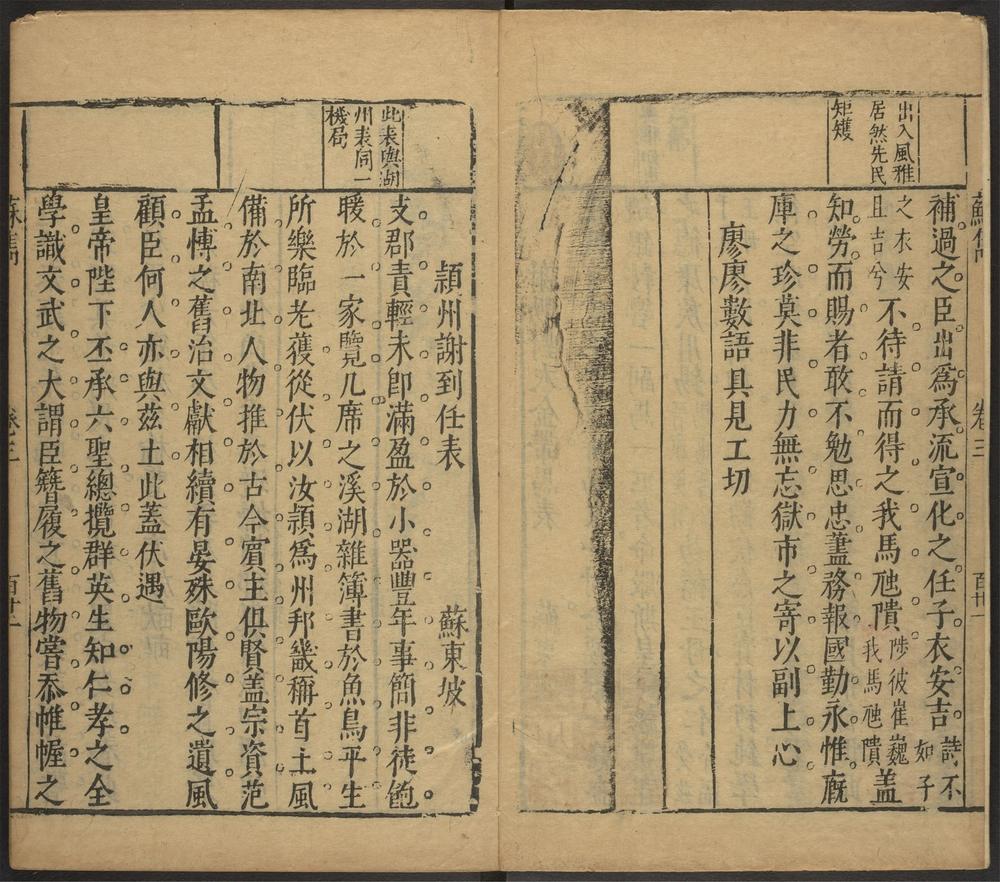 出入風雅
居然先民
矩矱
補過之臣出爲承流宣化之任子衣安吉詩不如子
之衣安且吉兮不待請而得之我馬虺隤陟彼崔巍我馬虺隤蓋
知勞而賜者敢不勉思忠藎務報國勤永惟廐
庫之珍莫非民力無忘獄市之寄以副上心
廖廖數語具見工切
卷三
此表與湖
州表同一
機局
潁州謝到任表 蘇東坡
支郡責輕未即滿盈於小器豐年事簡非徒飽
暖於一家覽几席之溪湖雜簿書於魚鳥平生
所樂臨老獲從伏以汝潁爲州邦畿稱首土風
備於南北人物推於古今賓主俱賢蓋宗資范
孟博之舊治文獻相續有晏殊歐陽修之遺風
顧臣何人亦與茲土此蓋伏遇
皇帝陛下丕承六聖總攬群英生知仁孝之全
學識文武之大謂臣簪履之舊物嘗忝帷幄之